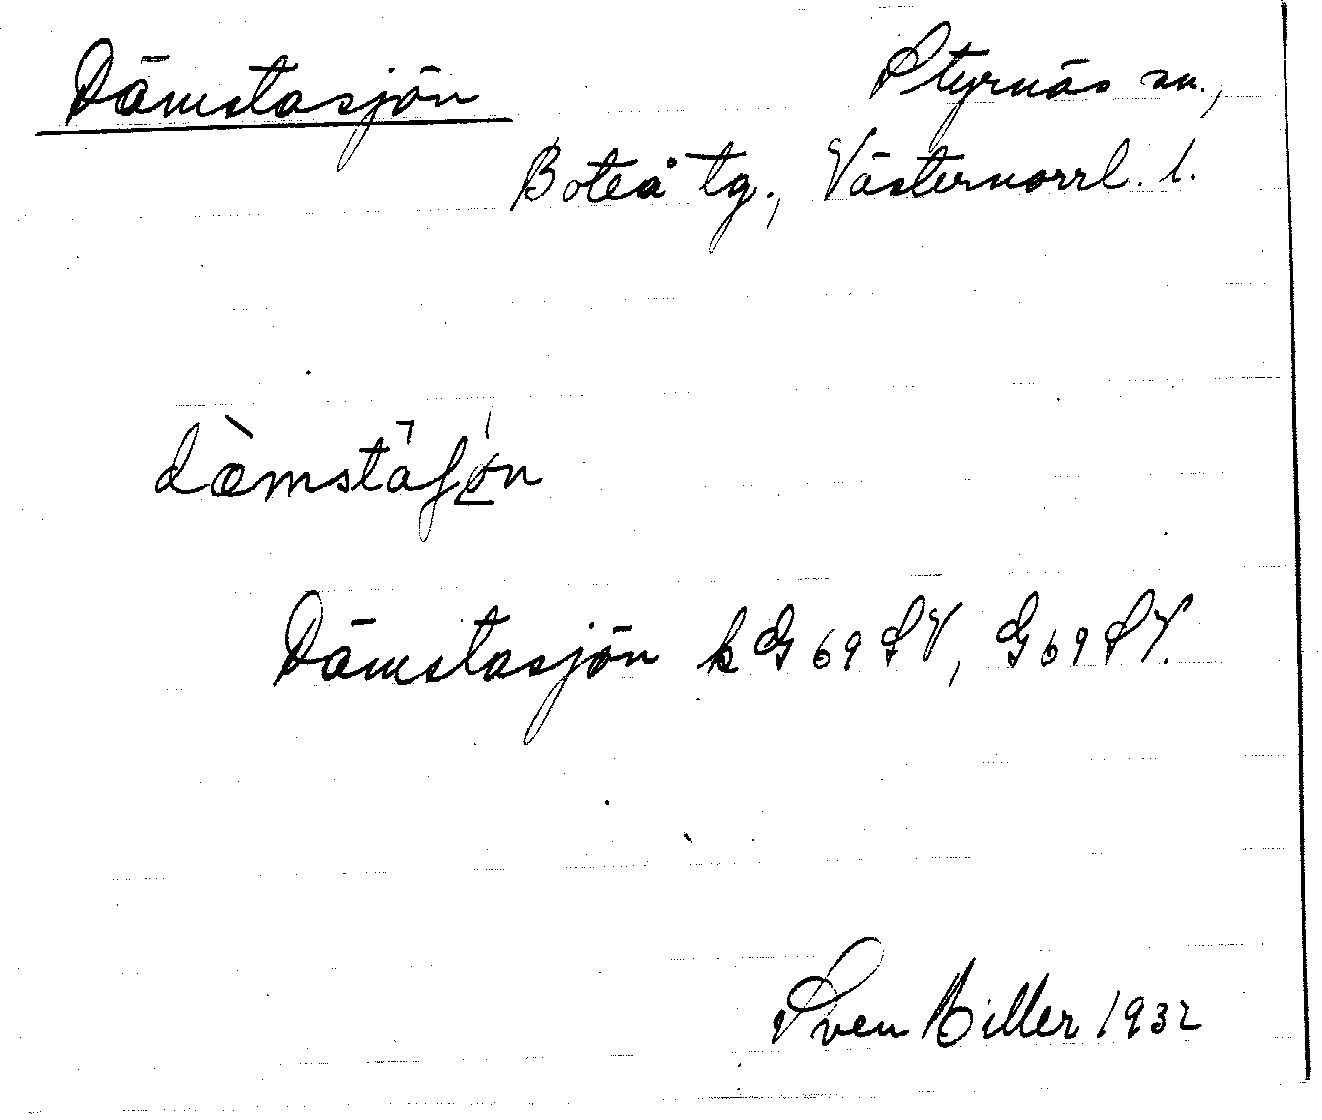 Dämstasjön
Styrnäs sn.,
Boteå tg., Västernorrl. l.
dæ̀mstaʃøn
Dämstasjön k G 69 SV, G 69 SV.
Sven Hiller 1932